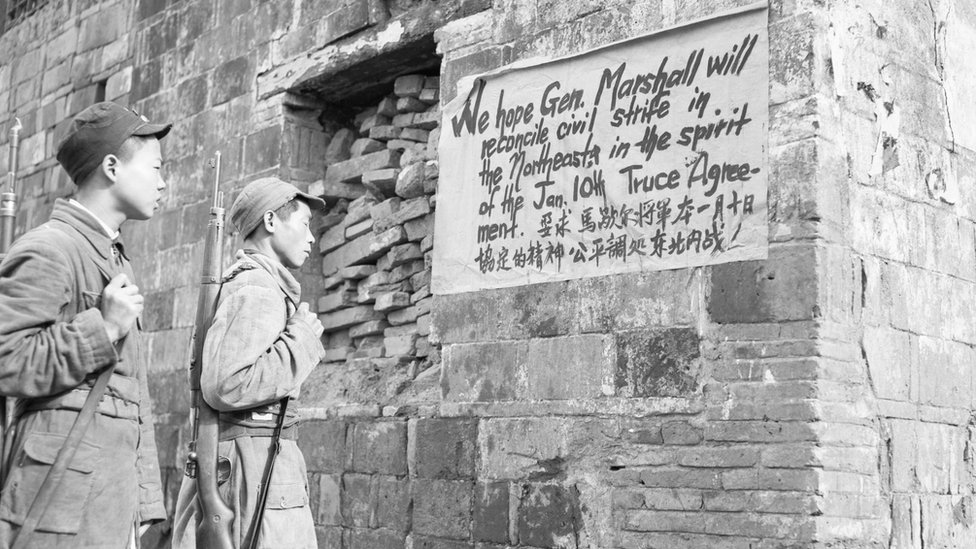 We hope Gen. Marshall will
reconcile civil strife in
the Northeastn in the spirit
of the Jan. 10th Truce Agree-
ment. 要求馬歇尔將軍本一月十日
協定的精神公平調処东北内战！